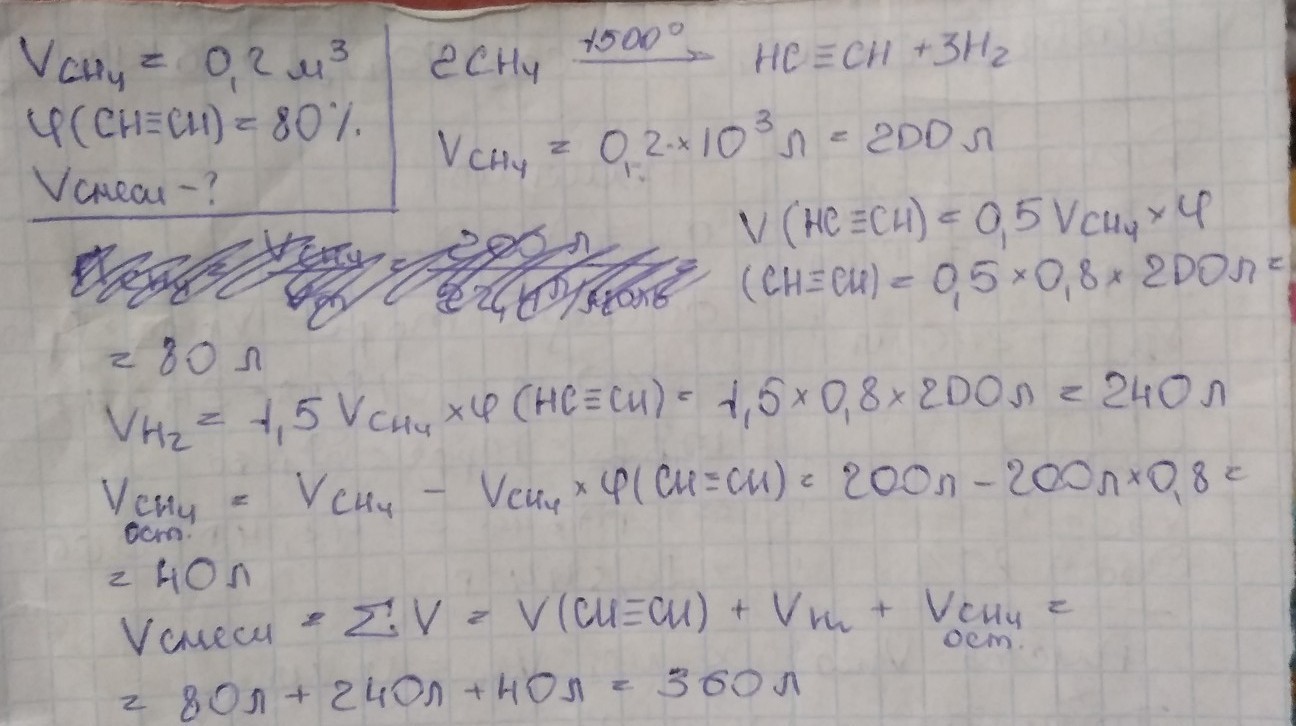 V CH₄ = 0,2 м³
φ(CH≡CH) = 80%.
Vсмеси - ?
2CH₄ 1500° → HC≡CH + 3H₂
V CH₄ = 0,2 × 10³ л = 200 л
V (HC≡CH) = 0,5 V CH₄ × φ
(CH≡CH) = 0,5 × 0,8 × 200л =
= 80 л
V H₂ = 1,5 V CH₄ × φ (HC≡CH) = 1,5 × 0,8 × 200л = 240 л
V CH₄ ост. = V CH₄ - V CH₄ × φ(CH≡CH) = 200л - 200л × 0,8 =
= 40 л
Vсмеси = ΣV = V(CH≡CH) + V H₂ + V CH₄ ост. =
= 80л + 240л + 40л = 360 л